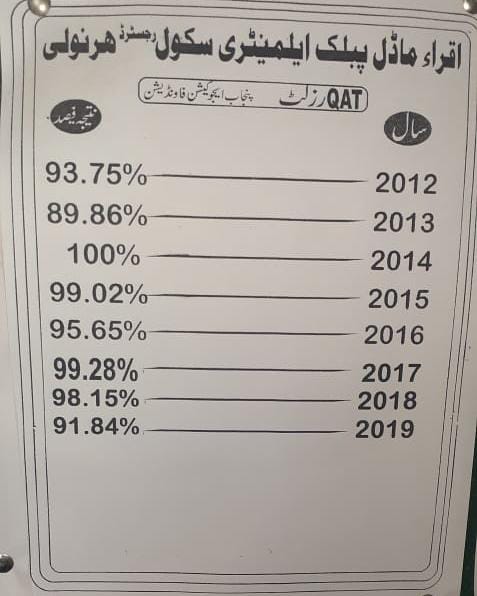 اقراء ماڈل پبلک ایلمینٹری سکول رجسٹرڈ ھرنولی
QAT رزلٹ پنجاب ایجوکیشن فاونڈیشن
سال نتیجہ فیصد
2012 93.75%
2013 89.86%
2014 100%
2015 99.02%
2016 95.65%
2017 99.28%
2018 98.15%
2019 91.84%